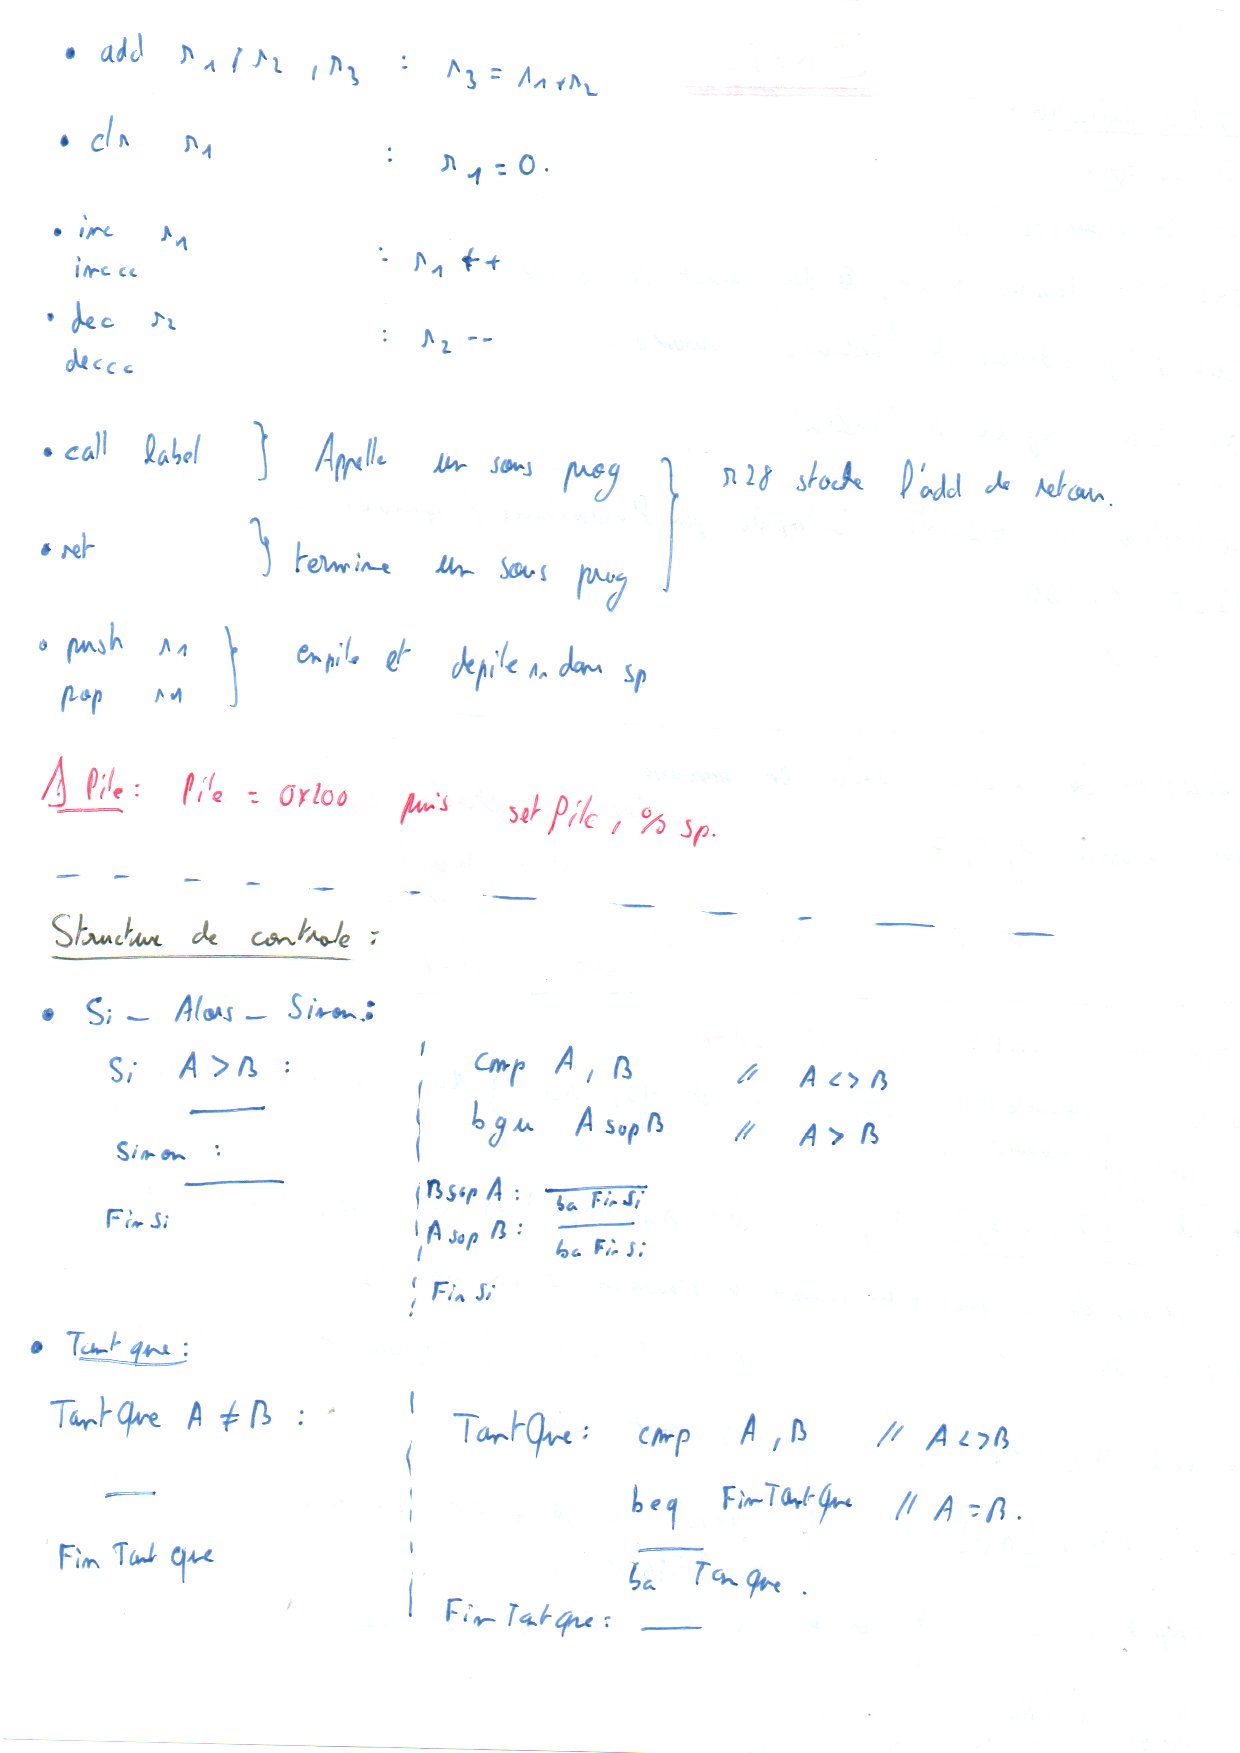 • add r1, r2, r3 : r3 = r1+r2
• clr r1 : r1 = 0.
• inc r1 : r1 ++
inccc
• dec r2 : r2 --
deccc
• call label } Appelle un sous prog } r28 stocke l'add de retour.
• ret } termine un sous prog
• push r1 } empile et depile r1 dans sp
pop r1
⚠ Pile : Pile = 0x200 puis set Pile, % sp.
Structure de controle :
• Si - Alors - Sinon :
Si A > B : cmp A, B // A <> B
bgu A sup B // A > B
Sinon :
B sup A : ba Fin Si
Fin si
A sup B : ba Fin Si
Fin Si
• Tant que :
Tant Que A ≠ B : Tant Que : cmp A, B // A <> B
beq Fin Tant Que // A = B.
Fin Tant que
ba Tan Que.
Fin Tant que :